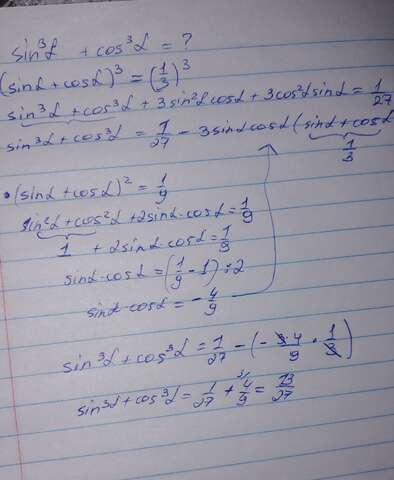 sin³α + cos³α = ?
(sinα + cosα)³ = (1/3)³
sin³α + cos³α + 3sin²α cosα + 3cos²α sinα = 1/27
sin³α + cos³α = 1/27 - 3sinα cosα (sinα + cosα
1/3
• (sinα + cosα)² = 1/9
sin²α + cos²α + 2sinα · cosα = 1/9
1 + 2sinα · cosα = 1/9
sinα · cosα = (1/9 - 1) ÷ 2
sinα · cosα = - 4/9
sin³α + cos³α = 1/27 - (- 3·4/9 · 1/3)
sin³α + cos³α = 1/27 + ³⁾4/9 = 13/27